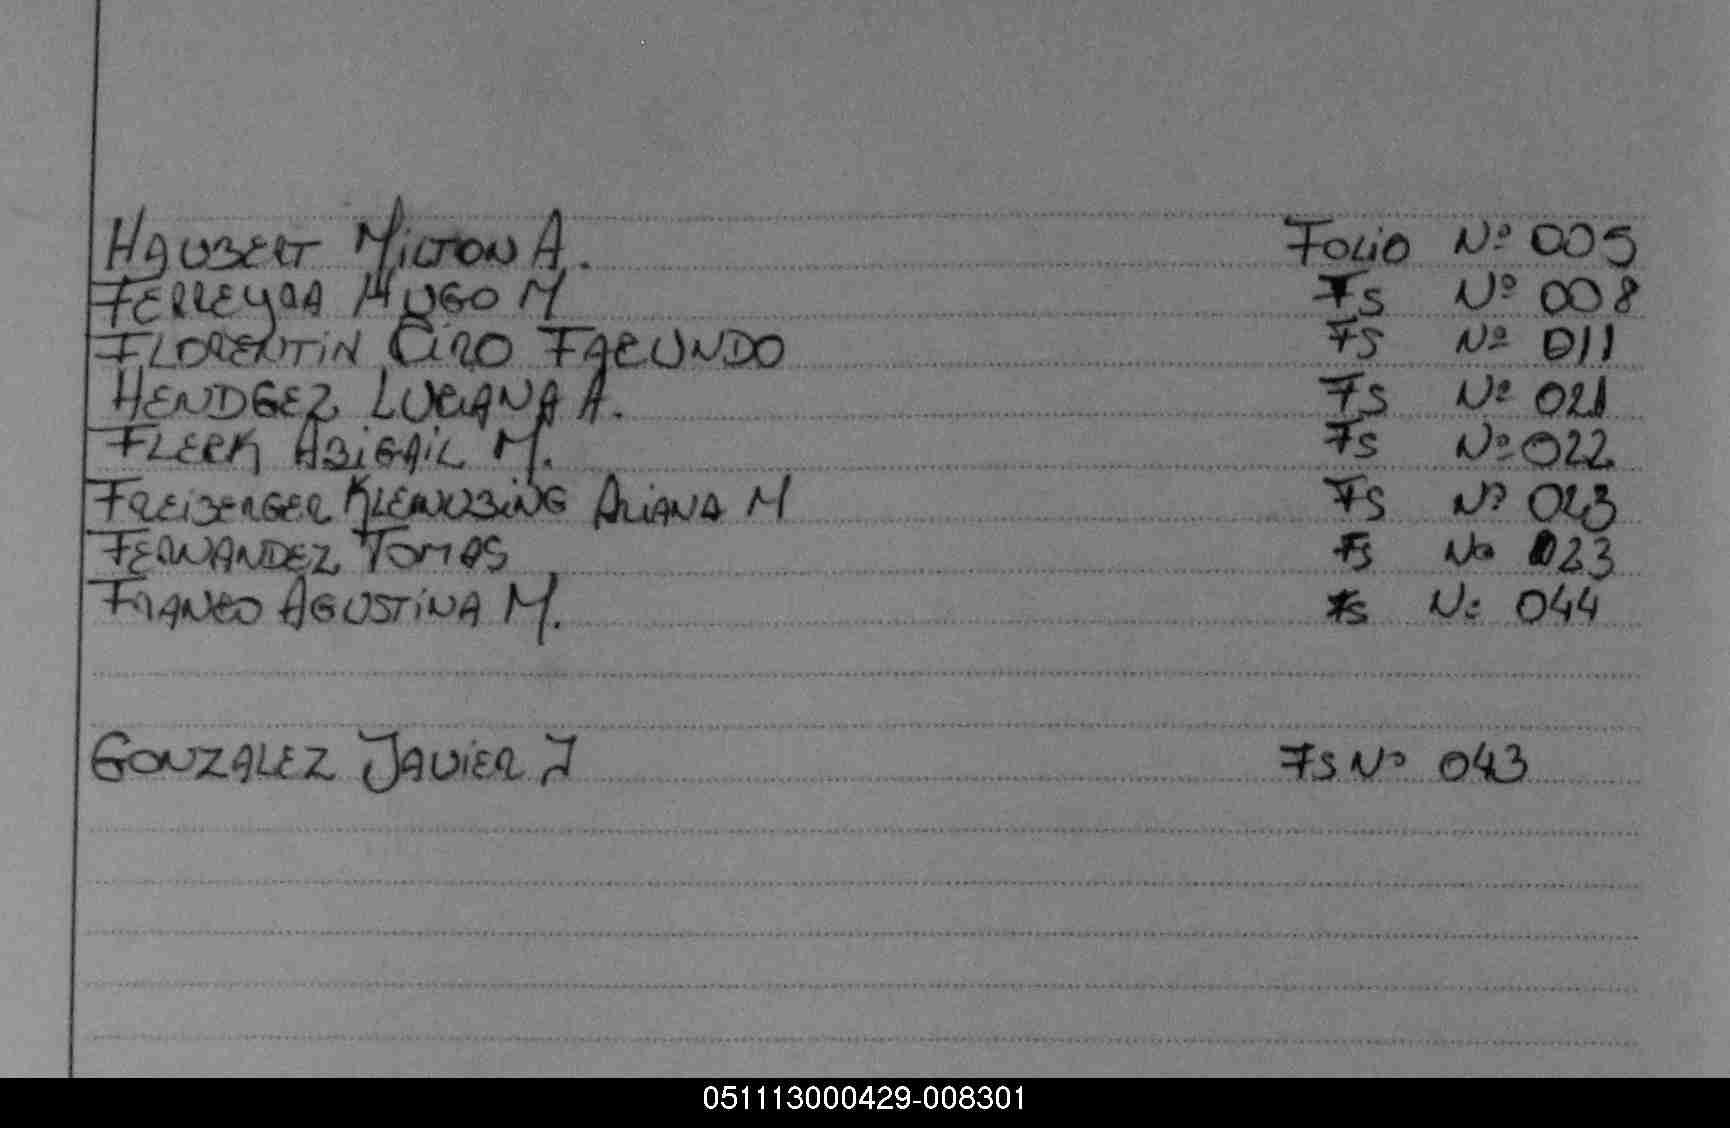 HAUBERT MILTON A. FOLIO Nº 005
FERREYRA HUGO M FS Nº 008
FLORENTIN CIRO FACUNDO FS Nº 011
HENDGEZ LUCIANA A. FS Nº 021
FLECK ABIGAIL M. FS Nº 022
FREIBERGER ARIANA M FS Nº 023
FERNANDEZ TOMAS FS Nº 023
FRANCO AGUSTINA M. FS Nº 044
GONZALEZ JAVIER J FS Nº 043
051113000429-008301